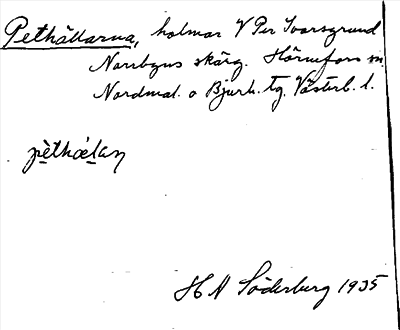 Pethällarna, holmar V Per Ivarsgrund
Norrbyns skärg. Hörnefors sn,
Nordmal. o Bjurh. tg. Västerb. l.
pèthǽlan
H A Söderberg 1935